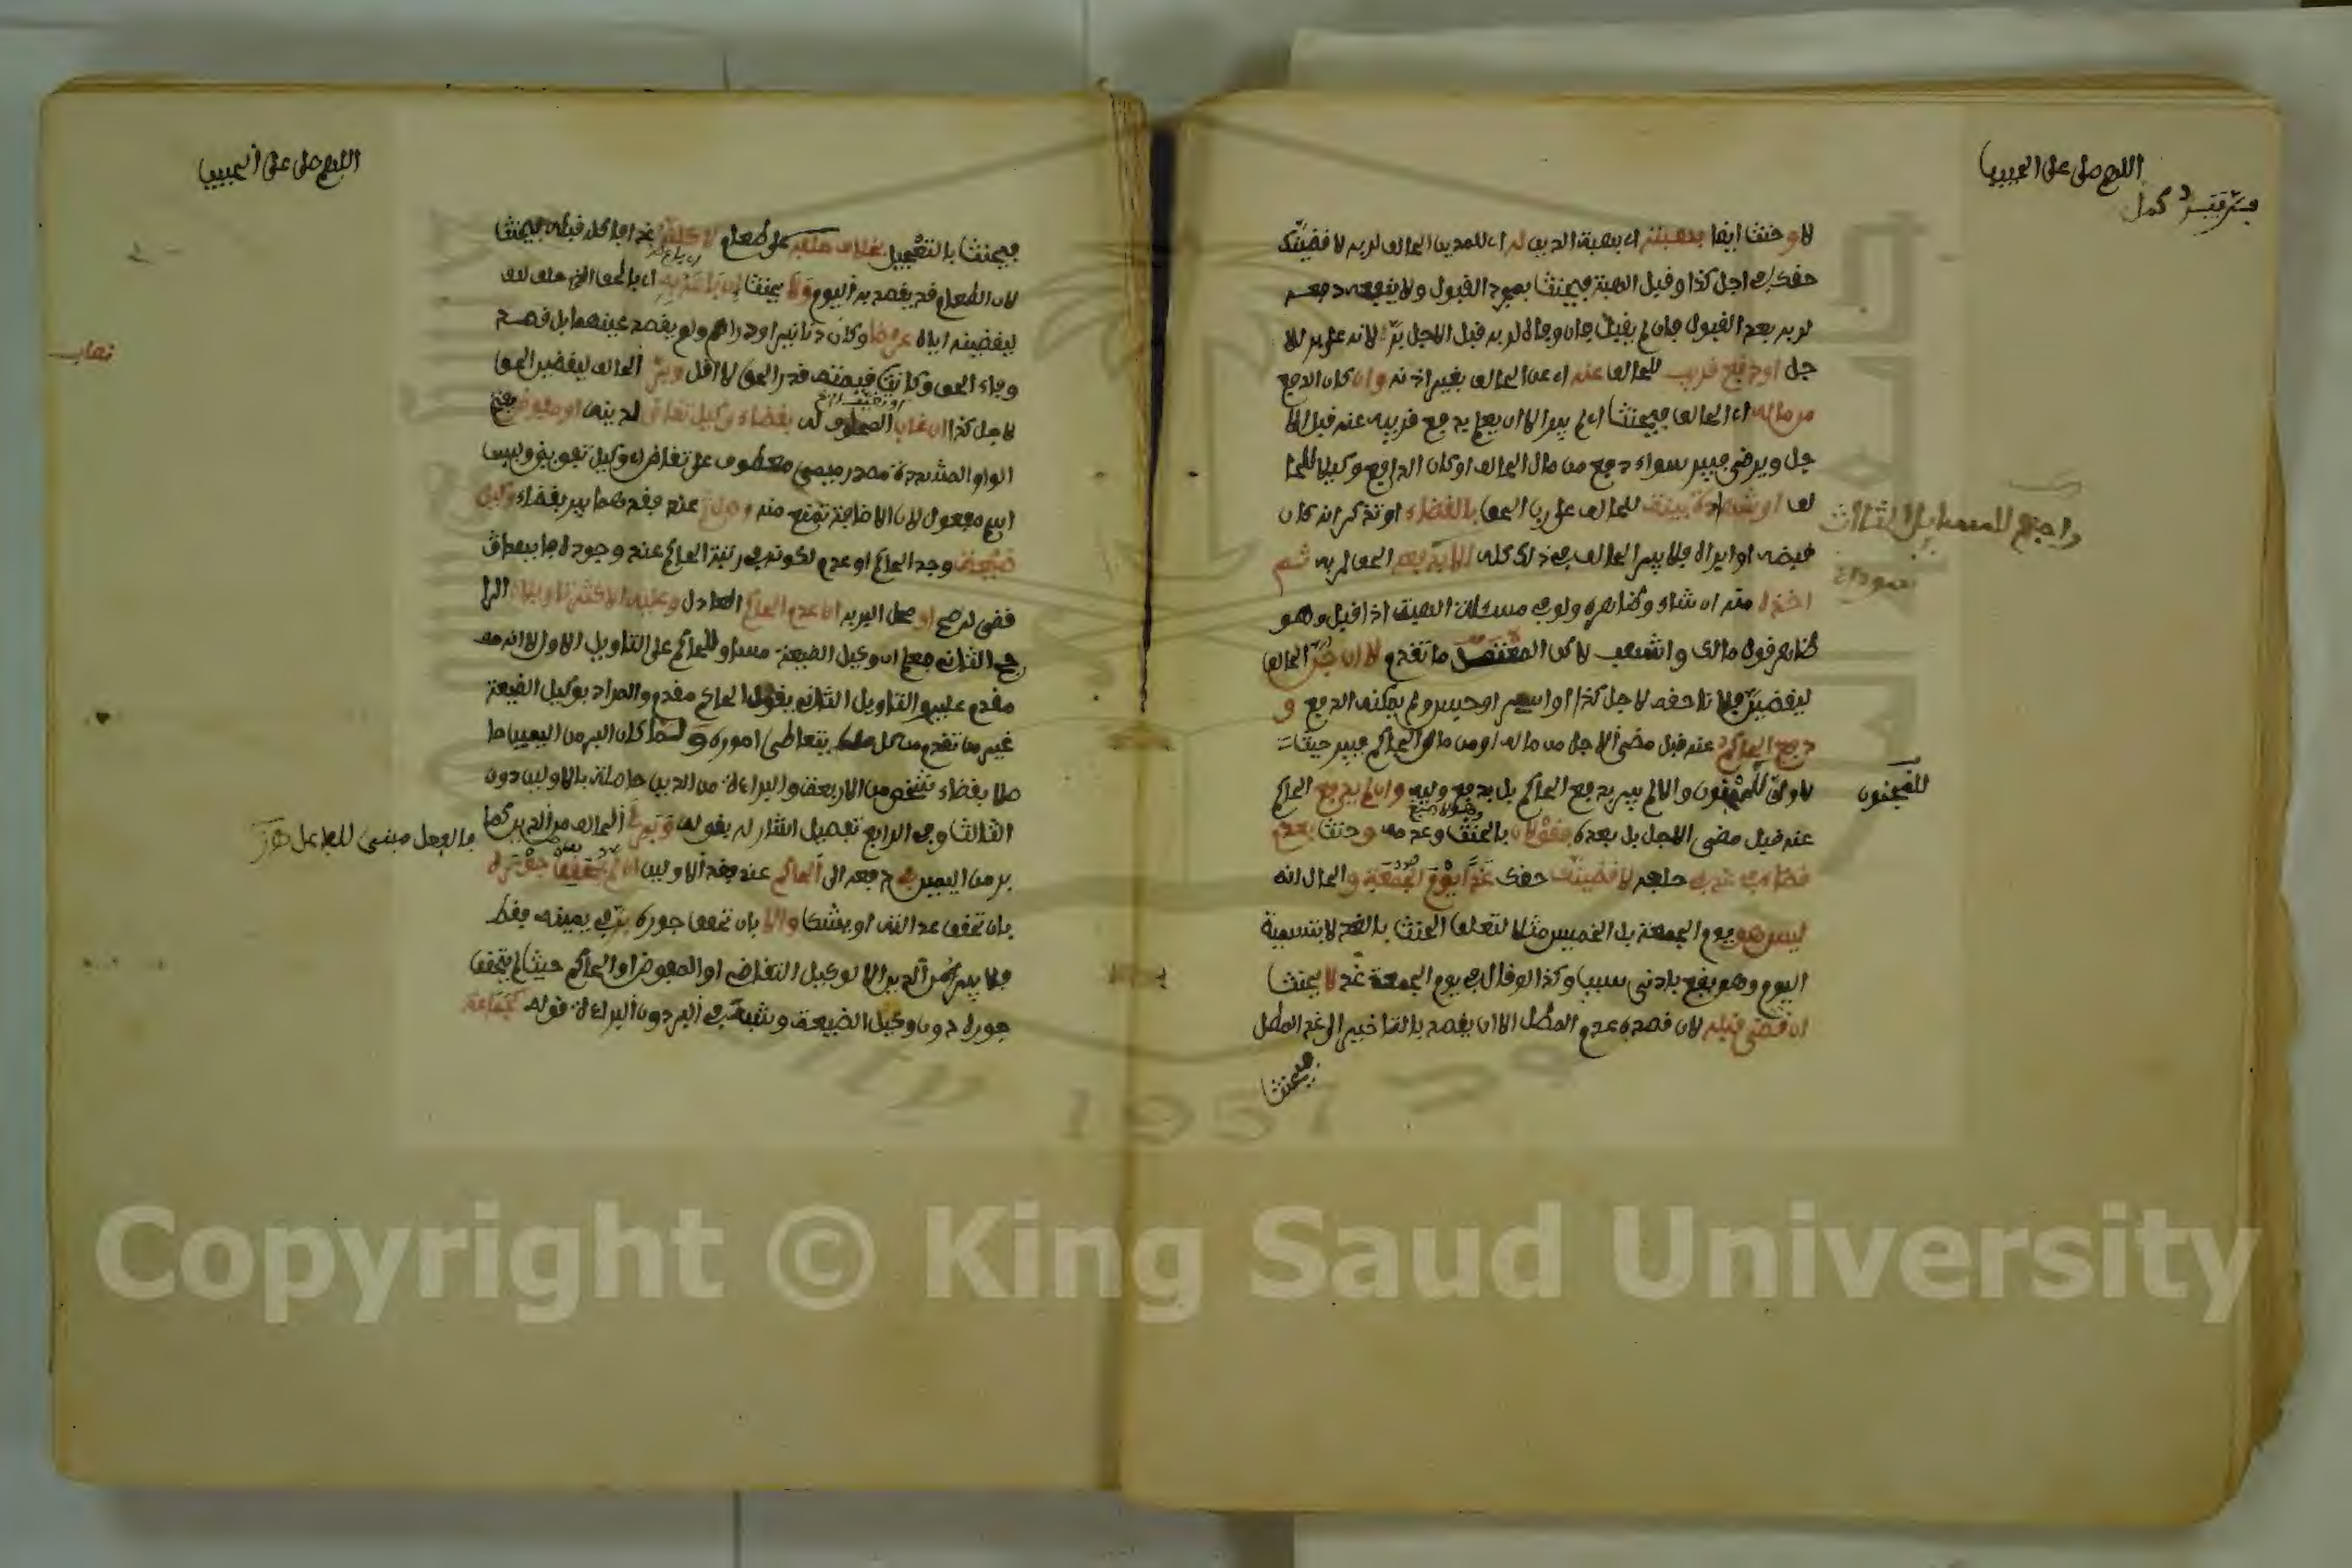 اللهم صل على الحبيب
لا و حنث ايضا بهبته اي بهبة الدين له اي للمدين الحالف لربه لاقضينك
حقك في اجل كذا وقبل الهبة فيحنث بمجرد القبول ولا ينفعه دفعه
لربه بعد القبول فان لم يقبل فان وفاه لربه قبل الاجل بر لانه على بر للا
جل او دفع قريب للحالف عنه اي عن الحالف بغير اذنه وان كان الدفع
من ماله اي الحالف فيحنث اي لم يبرا الا ان يعلم بدفع قريبه عنه قبل الا
جل ويرضى فيبر سواء دفع من مال الحالف او كان الدافع وكيلا للحا
لف او شهادة بينة للحالف على رب الحق بالقضاء او تذكر انه كان
قبضه او ابراه فلا يبر الحالف في ذلك كله الا بدفعه الحق لربه ثم
اخذه منه ان شاء وظاهره ولو في مسئلة الهبة اذا قبل وهو
ظاهر قول مالك واشهب لاكن المعتمد ما تقدم لا ان جن الحالف
ليقضين فلانا حقه لاجل كذا او اسر او حبس ولم يمكنه الدفع و
دفع الحاكم عنه قبل مضي الاجل من ماله او من مال الحاكم فيبر حيث
لا ولي للمجنون والا لم يبر بدفع الحاكم بل بدفع وليه وان لم يدفع الحاكم
عنه قبل مضي الاجل بل بعده فقولان بالحنث وعدمه و حنث بعدم
قضاء في غد في حلفه لاقضينك حقك غدا يوم الجمعة و الحال انه
ليس هو يوم الجمعة بل الخميس مثلا لتعلق الحنث بالغد لا بتسمية
اليوم وهو يقع بادنى سبب وكذا لو قال في يوم الجمعة غد لا يحنث
ان قضى قبله لان قصده عدم المطل الا ان يقصد بالتاخير الى غد المطل
فيحنث
راجع للمسايل الثلاث
للمجنون
اللهم صل على الحبيب
فيحنث بالتعجيل بخلاف حلفه على طعام لاكلنه غدا فاكله قبله فيحنث
لان الطعام قد يقصد به اليوم ولا يحنث ان باعه به اي بالحق الذي حلف له
ليقضينه اياه عرضا وكان دنانير او دراهم ولم يقصد عينهما بل قصد
وفاء الحق وكانت قيمته قدر الحق لا اقل وبر الحالف ليقضين الحق
لاجل كذا ان غاب المحلوف له بقضاء وكيل تقاض لدينه او مفوض بفتح
الواو المشددة مصدر ميمي معطوف على تقاض اي وكيل تفويض وليس
اسم مفعول لان الاضافة تمنع منه وهل ثم عند فقدهما يبر بقضاء وكيل
ضيعة وجد الحاكم او عدم لكونه في رتبة الحاكم عند وجوده فايهما
قضى له صح او محل البر به ان عدم الحاكم العادل وعليه الاكثر تاويلان الرا
جح الثاني فعلم ان وكيل الضيعة مساو للحاكم على التاويل الاول لا انه
مقدم عليه والتاويل الثاني يقول الحاكم مقدم والمراد بوكيل الضيعة
غير من تقدم من كل من يتعاطى اموره ولما كان البر من اليمين حا
صلا بقضاء شخص من الاربعة والبراءة من الدين حاصلة بالاولين دون
الثالث وفي الرابع تفصيل اشار له بقوله وتبرا الحالف من الدين كما
بر من اليمين في دفعه الى الحاكم عند فقد الاولين ان لم يحقق جوره
بان تحقق عدالته او يشك والا بان تحقق جوره بر في يمينه فقط
فلا يبر من الدين الا لوكيل التقاضي او المفوض او الحاكم حيث لم يتحقق
جوره دون وكيل الضيعة وشبه في البر دون البراءة قوله كجماعة
تقاب